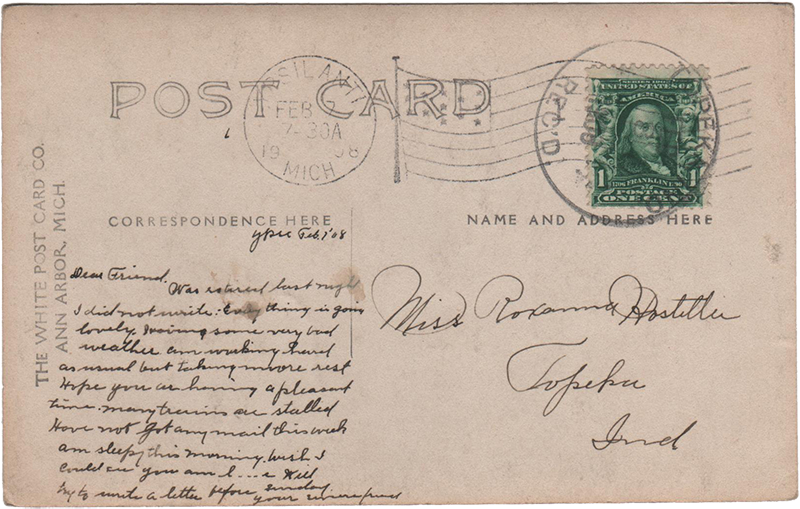 POST CARD
YPSILANTI
FEB 7
7-30A
1908
MICH
TOPEKA
REC'D.
SERIES 1902
UNITED STATES OF AMERICA
1 1
1706 FRANKLIN 1790
POSTAGE
ONE CENT
THE WHITE POST CARD CO.
ANN ARBOR, MICH.
CORRESPONDENCE HERE
NAME AND ADDRESS HERE
Ypsi Feb. 7 '08
Dear Friend.
Was retired last night
I did not write. Everything is going
lovely. Having some very bad
weather am working hard
as usual but taking more rest
Hope you are having a pleasant
time. many trains are stalled
Have not got any mail this week
am sleepy this morning. wish I
could see you am l...e Will
try to write a letter before Sunday
your friend
Miss Roxanna Hostetler
Topeka
Ind